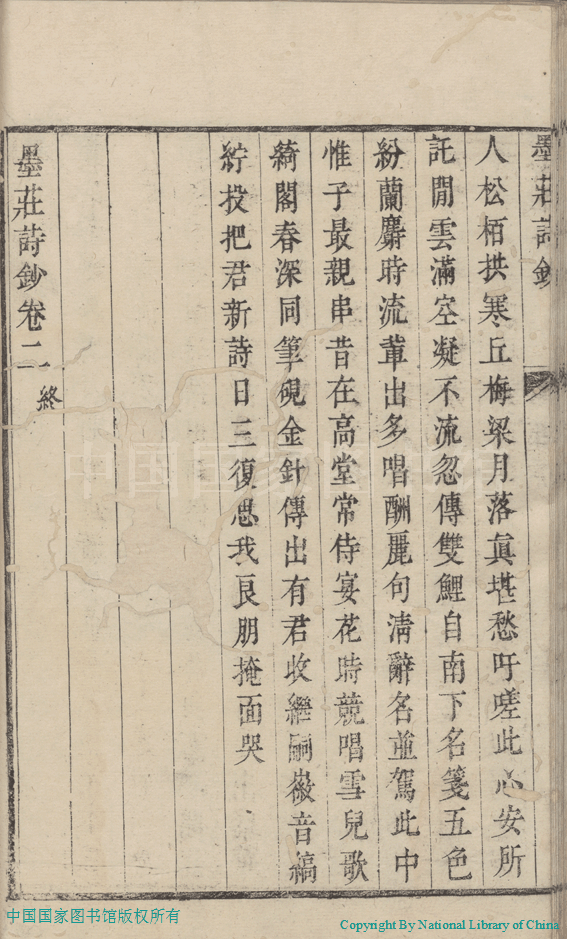 墨莊詩鈔
人松栢拱寒丘梅梁月落眞堪愁吁嗟此心安所
託閒雲滿空凝不流忽傳雙鯉自南下名箋五色
紛蘭麝時流輩出多唱酬麗句淸辭名並駕此中
惟子最親串昔在高堂常侍宴花時競唱雪兒歌
綺閣春深同筆硯金針傳出有君收繼嗣徽音縞
紵投把君新詩日三復思我良朋掩面哭
墨莊詩鈔卷二 終
中国国家图书馆版权所有
Copyright By National Library of China